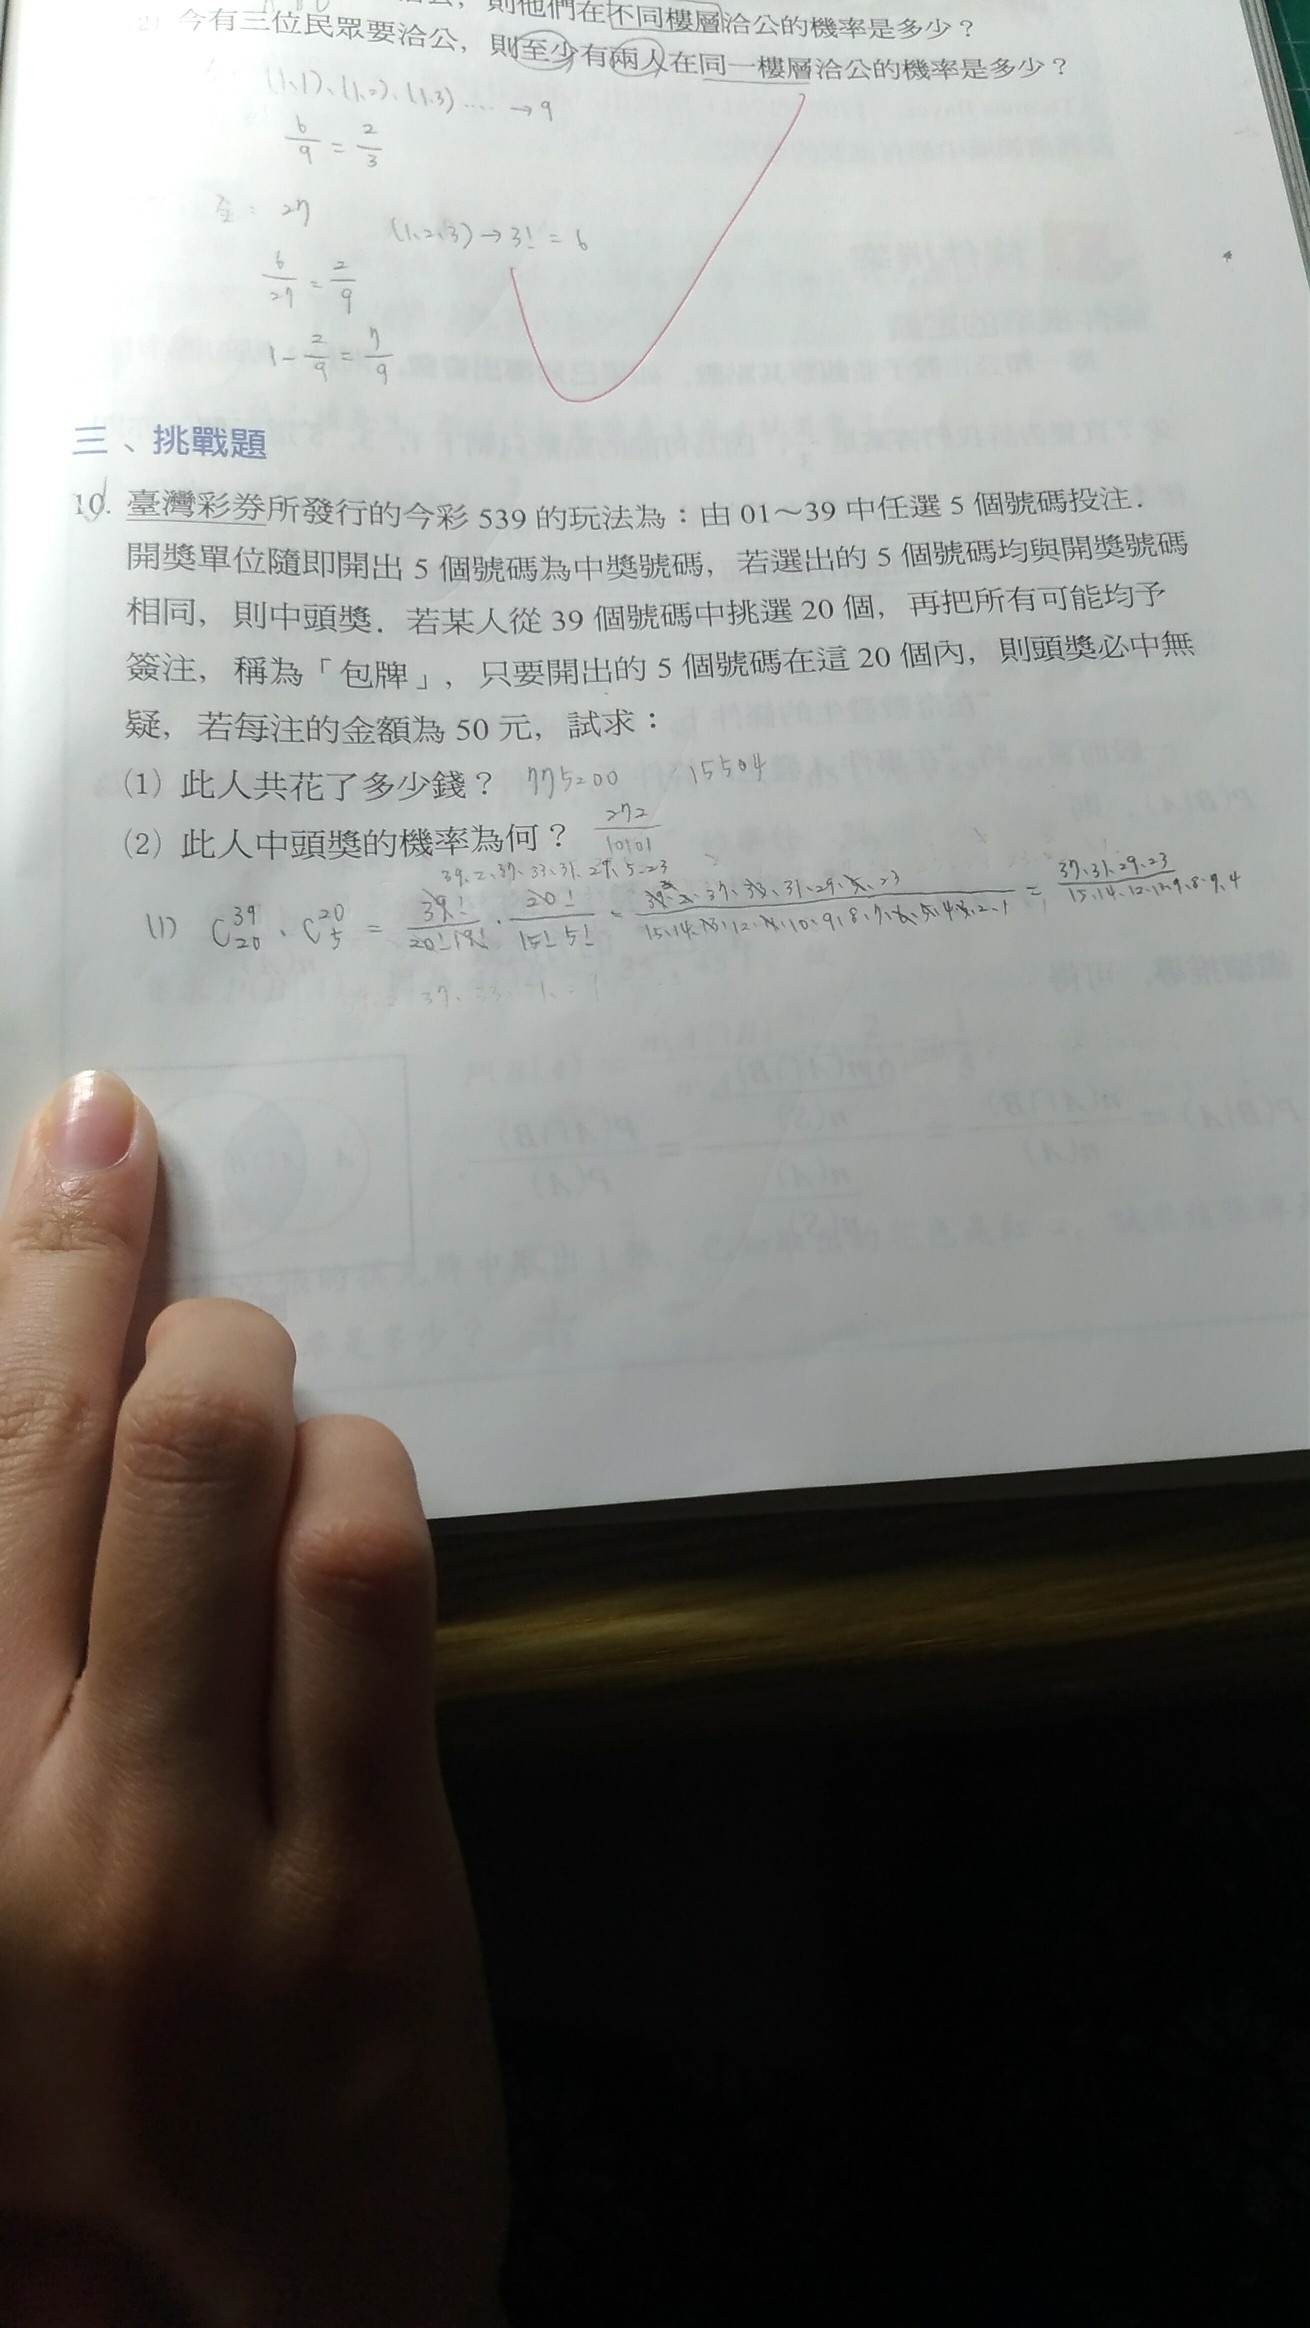 則他們在不同樓層洽公的機率是多少？
(2) 今有三位民眾要洽公，則至少有兩人在同一樓層洽公的機率是多少？
(1,1)、(1,2)、(1,3) .... → 9
6/9 = 2/3
全：27 (1,2,3) → 3! = 6
6/27 = 2/9
1 - 2/9 = 7/9
三、挑戰題
10. 臺灣彩券所發行的今彩 539 的玩法為：由 01～39 中任選 5 個號碼投注．
開獎單位隨即開出 5 個號碼為中獎號碼，若選出的 5 個號碼均與開獎號碼
相同，則中頭獎．若某人從 39 個號碼中挑選 20 個，再把所有可能均予
簽注，稱為「包牌」，只要開出的 5 個號碼在這 20 個內，則頭獎必中無
疑，若每注的金額為 50 元，試求：
(1) 此人共花了多少錢？ 775200 15504
(2) 此人中頭獎的機率為何？ 272/10101
39、2、37、33、31、29、5、23
(1) C³⁹₂₀、C²⁰₅ = 39!/20!19! · 20!/15!5! = = 37、31、29、23